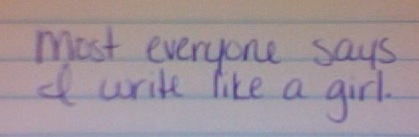 Most everyone says
I write like a girl.